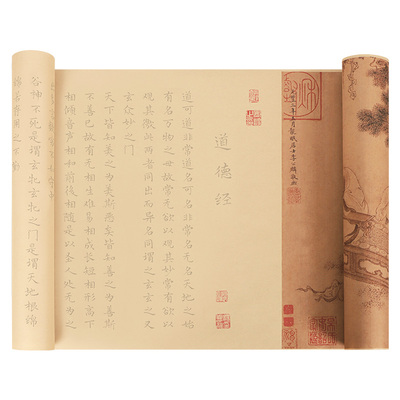 龍眠居士李公麟敬画
道德经
道可道非常道名可名非常名无名天地之始
有名万物之母故常无欲以观其妙常有欲以
观其徼此两者同出而异名同谓之玄玄之又
玄众妙之门
天下皆知美之为美斯恶矣皆知善之为善斯
不善已故有无相生难易相成长短相形高下
相倾音声相和前后相随是以圣人处无为之
谷神不死是谓玄牝玄牝之门是谓天地根绵